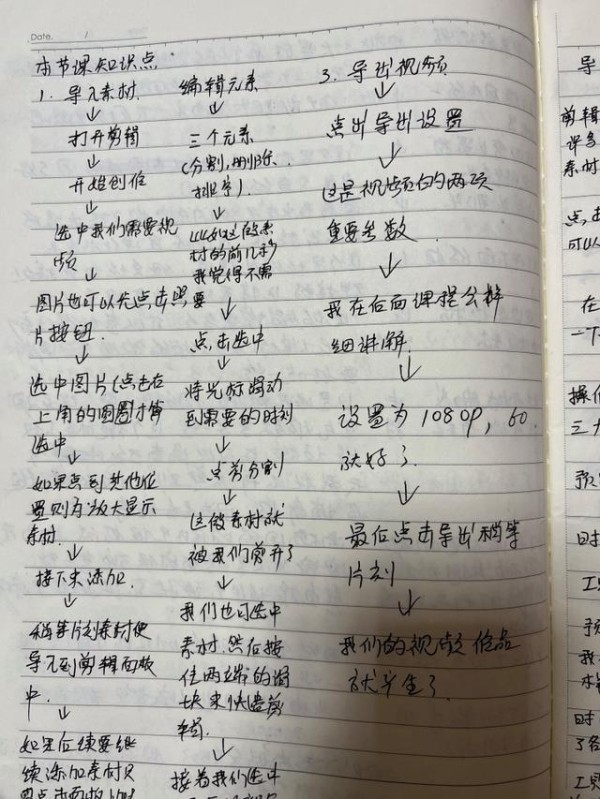 Date. /
本节课知识点.
1. 导入素材.
打开剪辑
开始创作
选中我们需要视
频
图片也可以先点击照
片按钮.
选中图片(点击右
上角的圆圈才算
选中
如果点到其他位
置则为放大显示
素材.
接下来添加.
稍等片刻素材便
导入到剪辑面板
中.
如果后续要继
续添加素材只
编辑元素
三个元素
(分割,删除.
排序)
比如这段素
材的前几秒
我觉得不需
要
点击选中
将光标滑动
到需要的时刻
点剪分割
这段素材就
被我们剪开了
我们也可选中
素材,然后按
住两端的滑
块来快速剪
辑.
接着我们选中
3. 导出视频
点出导出设置
这是视频的两项
重要参数.
我在后面课程会详
细讲解.
设置为1080P, 60.
就好了.
最后点击导出稍等
片刻
我们的视频作品
就诞生了.
导
剪辑
素材
点击
可以
在
一下
操作
三大
预
时
工具
预
我
时
了各
工具